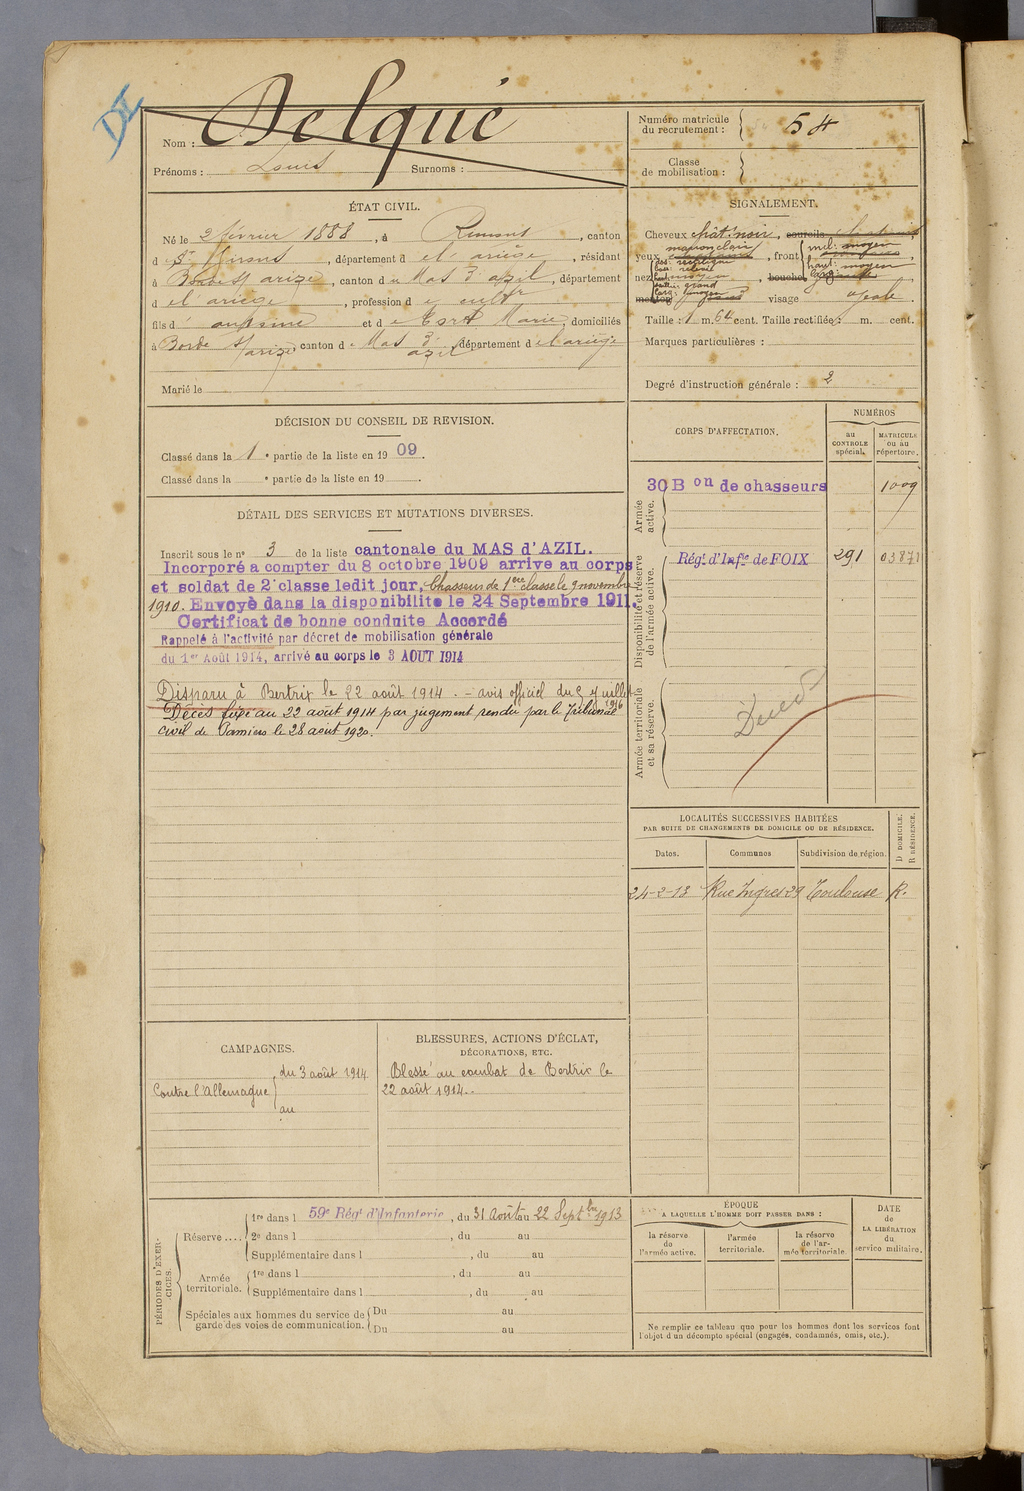 DI
Nom : Delqué
Prénoms : Louis Surnoms :
Numéro matricule du recrutement : 54
Classe de mobilisation :
ÉTAT CIVIL.
Né le 2 février 1888, à Rimont, canton
d St Girons, département d el ariège, résidant
à Borde s/ arize, canton d u Mas d'azil, département
d el ariege, profession d e cultr
fils d' antoine et d e Esrt Marie, domiciliés
à Borde s/ arize, canton d u Mas d'azil, département d el ariège
Marié le
SIGNALEMENT.
Cheveux chât. noir, sourcils
marron clair incl: moyen
yeux , front
dos: rectiligne haut: moyen
base: relevé larg:
nez , bouche
saillie: grand
larg: moyen
menton visage ovale
Taille : 1 m. 64 cent. Taille rectifiée : m. cent.
Marques particulières :
Degré d'instruction générale : 2
DÉCISION DU CONSEIL DE REVISION.
Classé dans la 1e partie de la liste en 1909.
Classé dans la e partie de la liste en 19 .
DÉTAIL DES SERVICES ET MUTATIONS DIVERSES.
Inscrit sous le n° 3 de la liste cantonale du MAS d'AZIL.
Incorporé a compter du 8 octobre 1909 arrive au corps
et soldat de 2e classe ledit jour, Chasseur de 1ère classe le 9 novembre
1910. Envoyé dans la disponibilite le 24 Septembre 1911.
Certificat de bonne conduite Accordé
Rappelé à l'activité par décret de mobilisation générale
du 1er Août 1914, arrivé au corps le 3 AOUT 1914
Disparu à Bertrix le 22 août 1914. - avis officiel du 5 juillet 1916
Décès fixé au 22 août 1914 par jugement rendu par le Tribunal
civil de Pamiers le 28 août 1920.
CORPS D'AFFECTATION.
NUMÉROS
au CONTROLE spécial.
MATRICULE ou au répertoire.
Armée active.
30 Bon de chasseurs 1009
Disponibilité et réserve de l'armée active.
Régt d'Infie de FOIX 291 03871
Armée territoriale et sa réserve.
Décédé
LOCALITÉS SUCCESSIVES HABITÉES
PAR SUITE DE CHANGEMENTS DE DOMICILE OU DE RÉSIDENCE.
Dates. Communes Subdivision de région. D DOMICILE. R RÉSIDENCE.
24-2-13 Rue Ingres 29 Toulouse R.
CAMPAGNES.
Contre l'Allemagne du 3 août 1914
au
BLESSURES, ACTIONS D'ÉCLAT,
DÉCORATIONS, ETC.
Blessé au combat de Bertrix le
22 août 1914.
PÉRIODES D'EXERCICES.
Réserve .... 1re dans l 59e Régt d'Infanterie, du 31 Août au 22 Septbre 1913
2e dans l , du au
Supplémentaire dans l , du au
Armée territoriale. 1re dans l , du au
Supplémentaire dans l , du au
Spéciales aux hommes du service de garde des voies de communication. Du au
Du au
ÉPOQUE
A LAQUELLE L'HOMME DOIT PASSER DANS :
la réserve de l'armée active.
l'armée territoriale.
la réserve de l'armée territoriale.
DATE de LA LIBÉRATION du service militaire.
Ne remplir ce tableau que pour les hommes dont les services font
l'objet d'un décompte spécial (engagés, condamnés, omis, etc.).